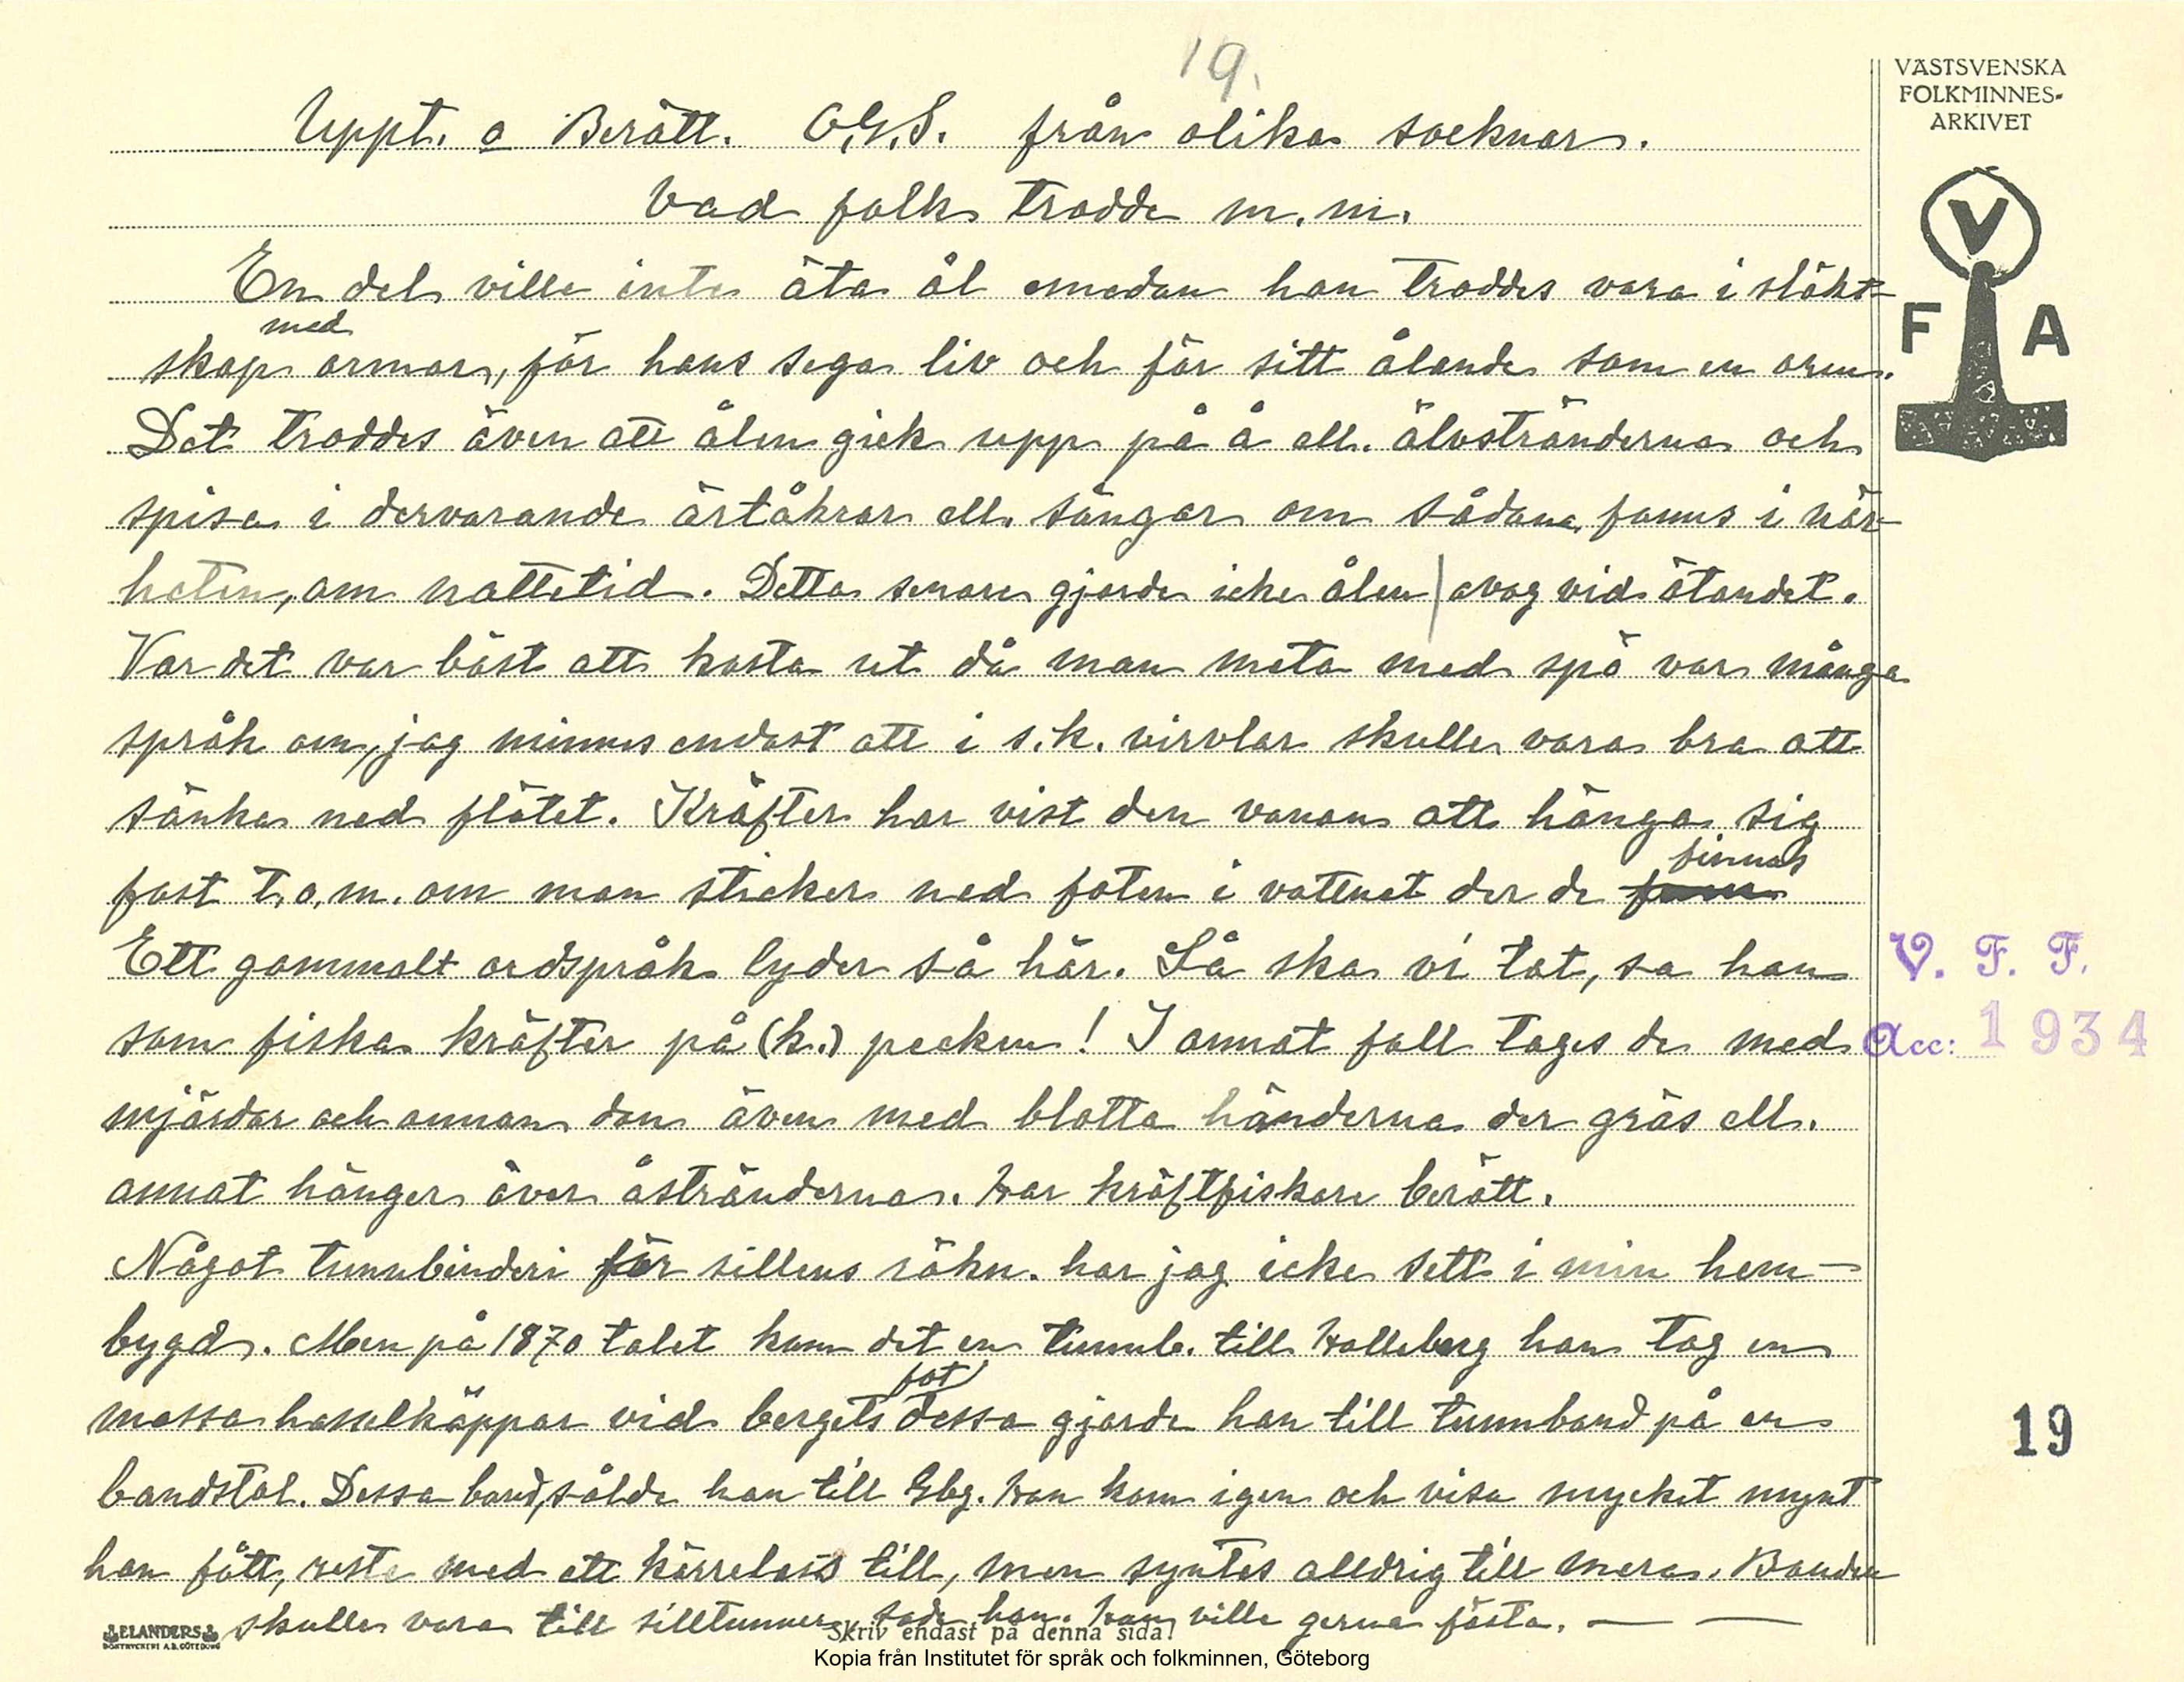 19.
VÄSTSVENSKA
FOLKMINNES-
ARKIVET
V
F A
Uppt. o Berätt. C.G.S. från olika socknar.
Vad folk trodde m.m.
En del ville inte äta ål emedan han troddes vara i släkt-
skap med ormar, för hans sega liv och för sitt ålande som en orm.
Det troddes även att ålen gick upp på å ell. älvstränderna och
spisa i dervarande ärtåkrar ell. sängar om sådana fanns i när-
heten, om nattetid. Detta senare gjorde icke ålen avog vid ätandet.
Var det var bäst att kasta ut då man meta med spö var många
språk om, jag minnes endast att i s.k. virvlar skulle vara bra att
sänka ned flötet. Kräfter har vist den vanan att hänga sig
fast t.o.m. om man sticker ned foten i vattnet der de finnes
Ett gammalt ordspråk lyder så här. Så ska vi tat, sa han
som fiska kräfter på (k.) pecken! I annat fall tages de med
mjärdar och annan don även med blotta händerna der gräs ell.
annat hänger över åstränderna. Har kräftfiskare berätt.
Något tunnbinderi för sillens räkn. har jag icke sett i min hem-
bygd. Men på 1870 talet kom det en tunnb. till Halleberg han tog en
massa hasselkäppar vid bergets fot dessa gjorde han till tunnband på en
bandstol. Dessa band, sålde han till Gbg. Han kom igen och visa mycket mynt
han fått, reste med ett kärrelass till, men syntes alldrig till mera. Banden
skulle vara till silltunnor, sade han. Han ville gerna fästa. — —
V. F. F.
Acc: 1934
19
ELANDERS
BOKTRYCKERI A.B. GÖTEBORG
Skriv endast på denna sida!
Kopia från Institutet för språk och folkminnen, Göteborg